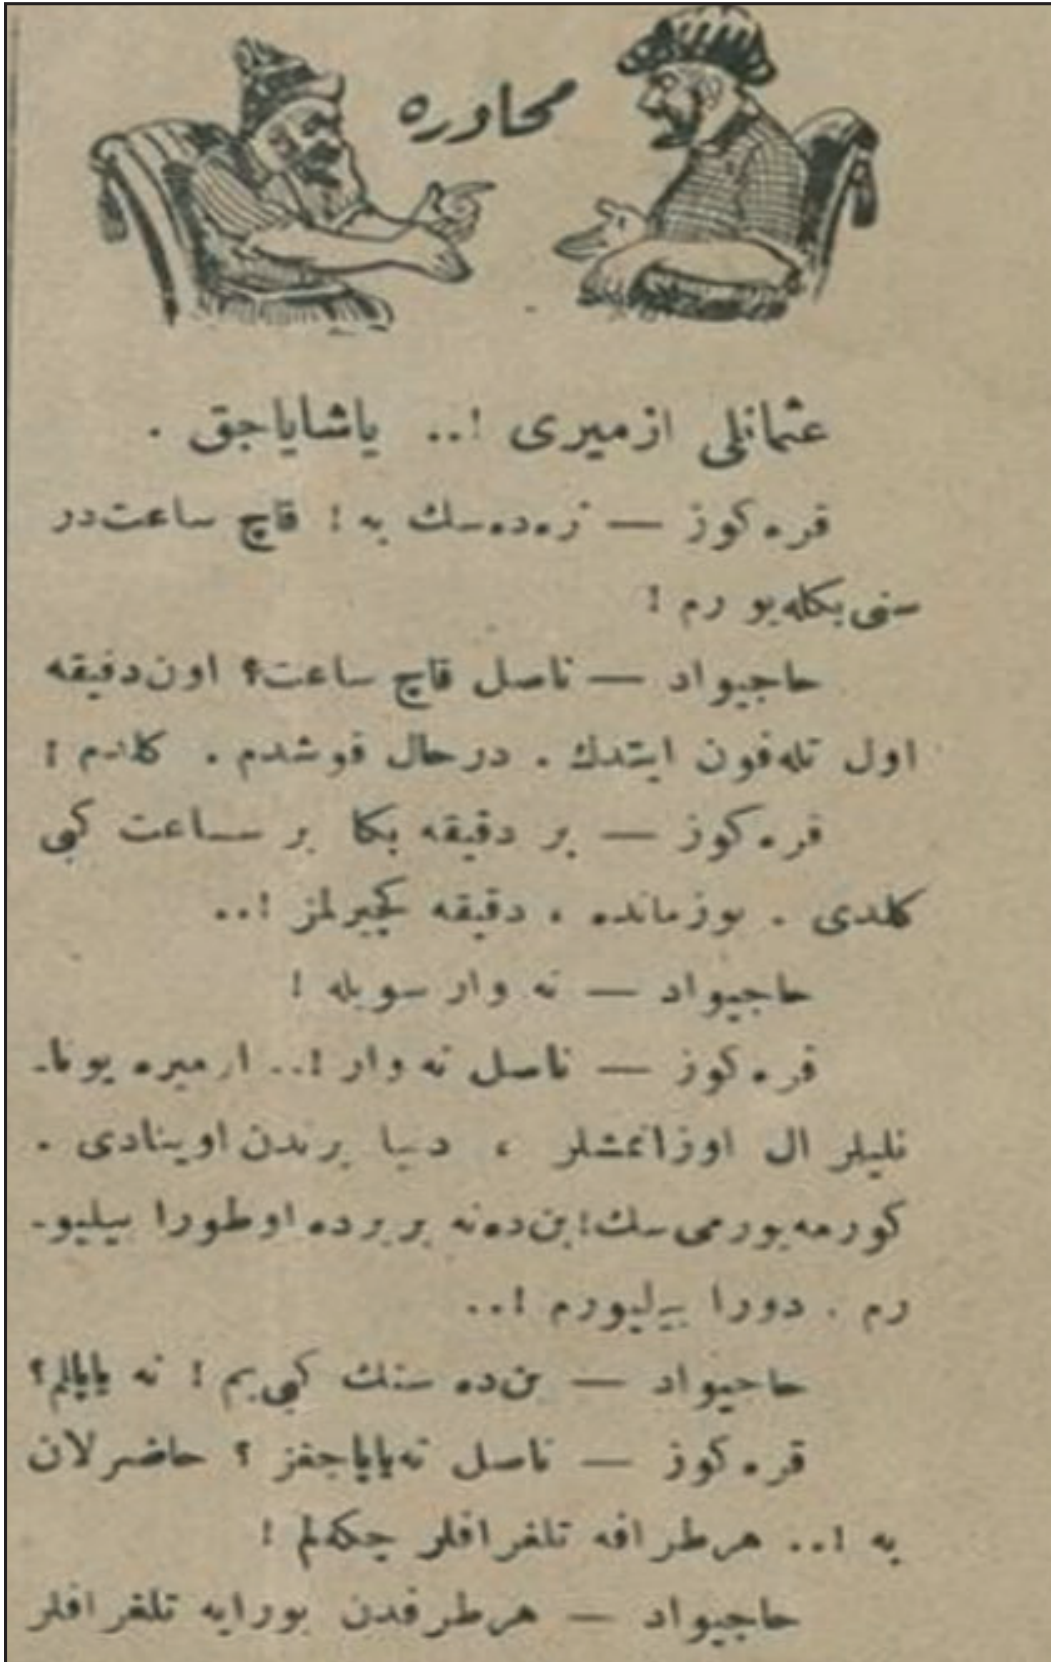 محاوره
عثمانلی ازمیری !.. یاشایاجق .
قره‌كوز — نره‌ده‌سك به ! قاچ ساعت‌در
سنی بكله‌یورم !
حاجیواد — ناصل قاچ ساعت؟ اون‌دقیقه
اول تله‌فون ایتدك . درحال قوشدم . كلدم !
قره‌كوز — بر دقیقه بكا بر ساعت كبی
كلدی . بوزمانده ، دقیقه كچیرلمز !..
حاجیواد — نه وار سویله !
قره‌كوز — ناصل نه وار !.. ازمیره یونا-
نلیلر ال اوزاتمشلر ، دنیا یرندن اوینادی .
كورمه‌یورمی‌سك ! بن‌ده‌نه بریرده اوطورا بیلیو-
رم . دورا بیلیورم !..
حاجیواد — بن‌ده سنك كبی‌یم ! نه یاپالم؟
قره‌كوز — ناصل نه‌یاپاجغز ؟ حاضرلان
به !.. هرطرافه تلغرافلر چكه‌لم !
حاجیواد — هرطرفدن بورایه تلغرافلر